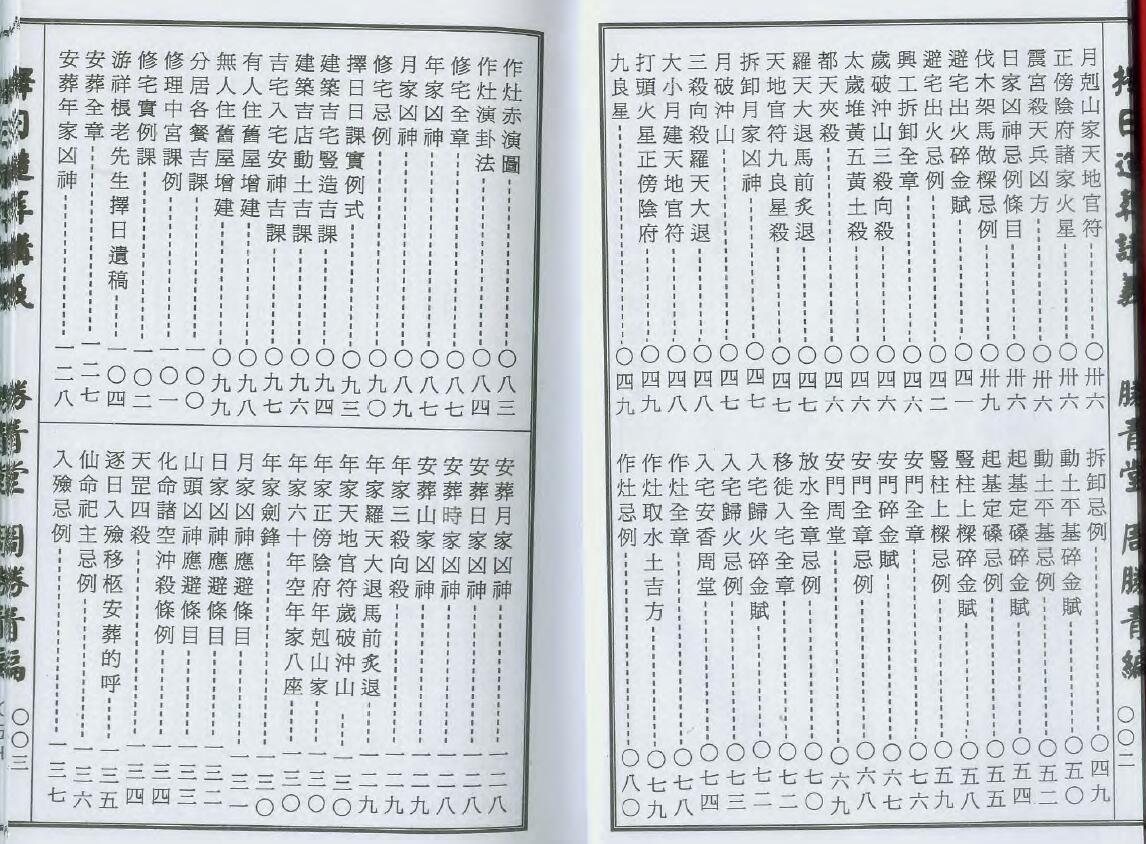 擇日進階講義 勝青堂 周勝青編 〇〇二
月剋山家天地官符 〇卅六
正傍陰府諸家火星 〇卅六
震宮殺天兵凶方 〇卅六
日家凶神忌例條目 〇卅六
伐木架馬做樑忌例 〇卅九
避宅出火碎金賦 〇四一
避宅出火忌例 〇四二
興工拆卸全章 〇四六
歲破沖山三殺向殺 〇四六
太歲堆黃五黃土殺 〇四六
都天夾殺 〇四六
羅天大退馬前炙退 〇四七
天地官符九良星殺 〇四七
拆卸月家凶神 〇四七
月破沖山 〇四七
三殺向殺羅天大退 〇四八
大小月建天地官符 〇四九
打頭火星正傍陰府 〇四九
九良星 〇四九
拆卸忌例 〇四九
動土平基碎金賦 〇五〇
動土平基忌例 〇五二
起基定磉碎金賦 〇五四
起基定磉忌例 〇五五
豎柱上樑碎金賦 〇五八
豎柱上樑忌例 〇五九
安門全章 〇六七
安門碎金賦 〇六七
安門全章忌例 〇六八
安門周堂 〇六九
放水全章忌例 〇七〇
移徙入宅全章 〇七二
入宅歸火碎金賦 〇七二
入宅歸火忌例 〇七三
入宅安香周堂 〇七四
作灶全章 〇七八
作灶取水土吉方 〇七九
作灶忌例 〇八〇
作灶赤演圖 〇八三
作灶演卦法 〇八四
修宅全章 〇八七
年家凶神 〇八七
月家凶神 〇八九
修宅忌例 〇九〇
擇日日課實例式 〇九三
建築吉宅豎造吉課 〇九四
建築吉店動土吉課 〇九六
吉宅入宅安神吉課 〇九七
有人住舊屋增建 〇九八
無人住舊屋增建 〇九九
分居各餐吉課 一〇〇
修理中宮課例 一〇一
修宅實例課 一〇二
游祥根老先生擇日遺稿 一〇四
安葬全章 一二七
安葬年家凶神 一二八
安葬月家凶神 一二八
安葬日家凶神 一二八
安葬時家凶神 一二八
安葬山家凶神 一二九
年家三殺向殺 一二九
年家羅天大退馬前炙退 一二九
年家天地官符歲破沖山 一三〇
年家正傍陰府年剋山家 一三〇
年家六十年空年家八座 一三〇
年家劍鋒 一三〇
月家凶神應避條目 一三一
日家凶神應避條目 一三二
山頭凶神應避條目 一三三
化命諸空沖殺條例 一三四
天罡四殺 一三四
逐日入殮移柩安葬的呼 一三五
仙命祀主忌例 一三六
入殮忌例 一三七
勝青堂 周勝青編 〇〇三